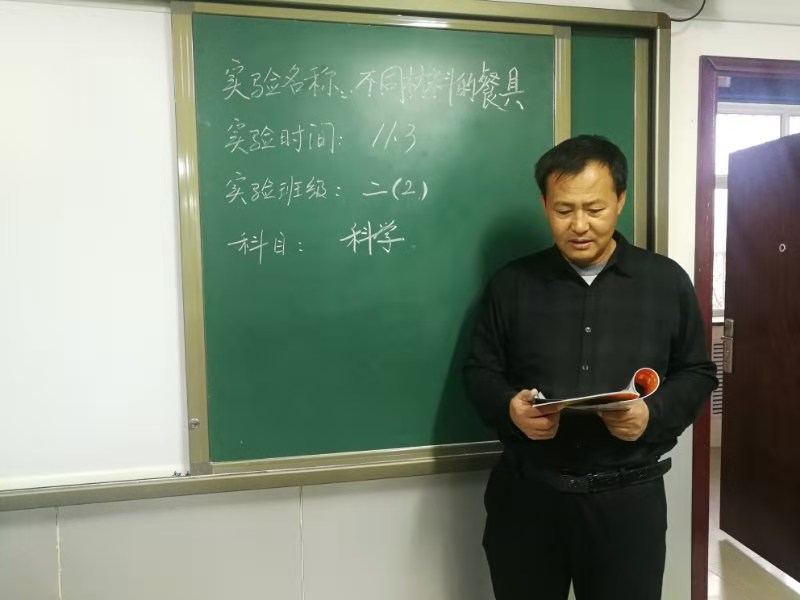 实验名称：不同材料的餐具
实验时间：11.3
实验班级：二(2)
科目：科学